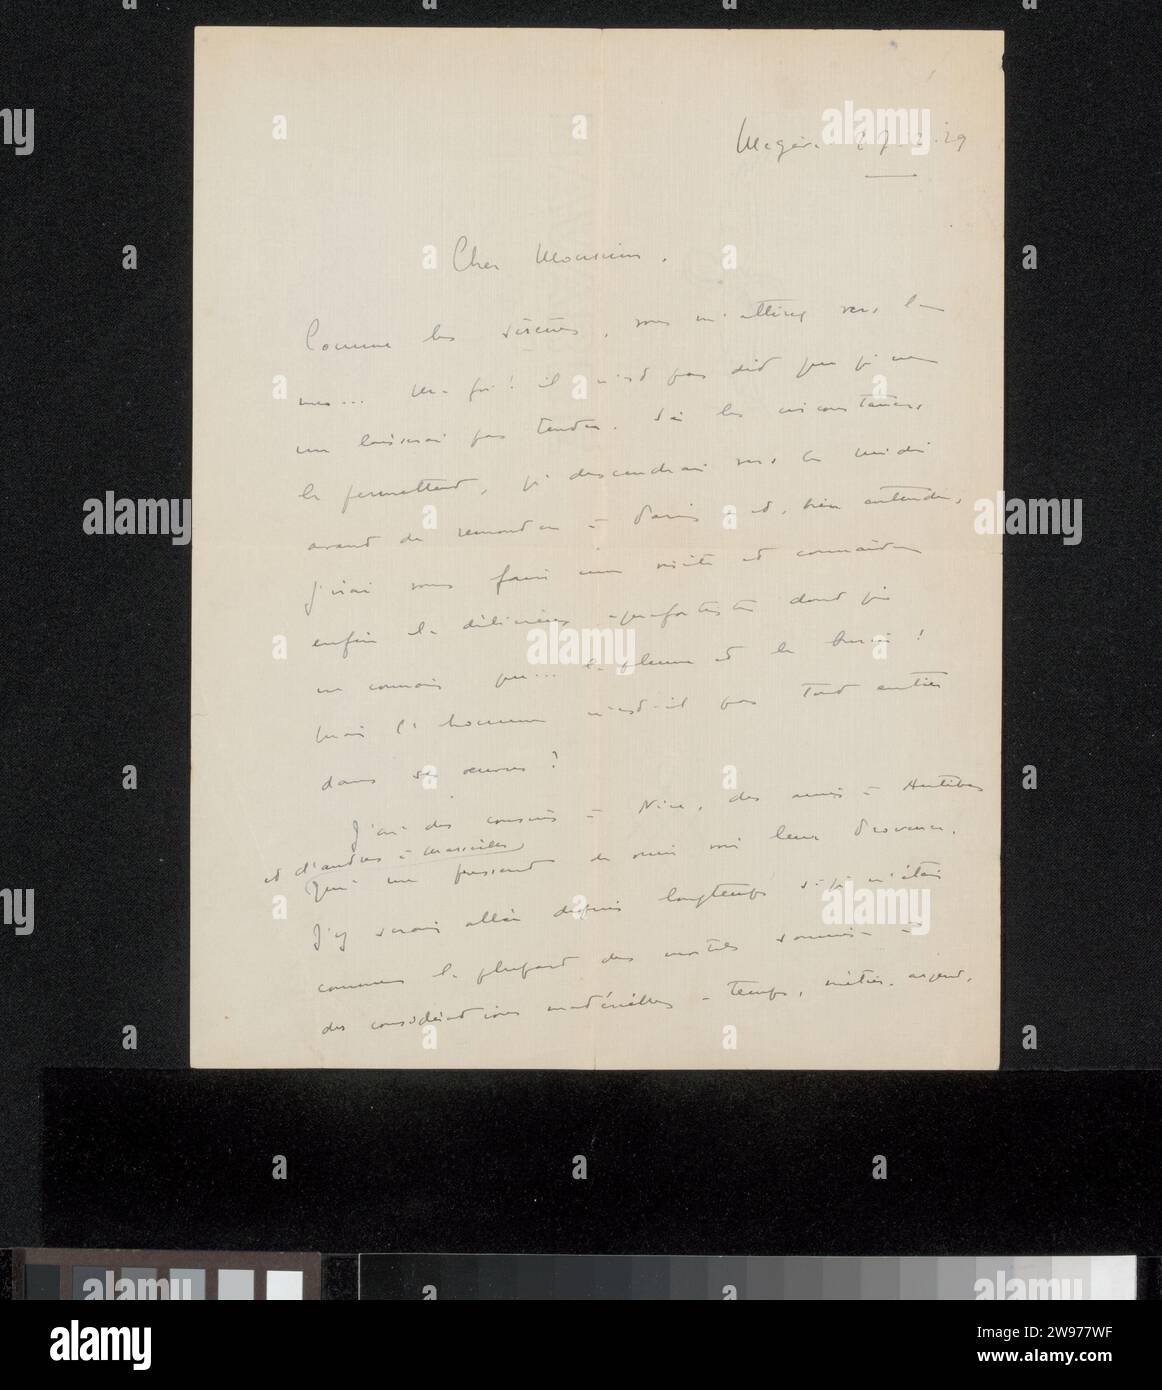 27.2.29
Cher Monsieur,
Comme les sirènes, vous m'attirez vers la
mer... Ma foi! il n'est pas dit que je ne
me laisserai pas tenter. Si les circonstances
le permettent, je descendrai vers le midi
avant de remonter à Paris et, bien entendu,
j'irai vous faire une visite et connaître
enfin le délicieux aquafortiste dont je
ne connais que... la plume et le burin!
Mais l'homme n'est-il pas tout entier
dans ses œuvres?
J'ai des cousins à Nice, des amis à Antibes
et d'autres à Marseille
Qui me pressent de venir voir leur Provence.
J'y serais allé depuis longtemps si je n'étais
comme la plupart des mortels soumis à
des considérations matérielles - temps, métier, argent,
alamy
alamy
alamy
alamy
alamy
alamy
alamy
Image ID: 2W977WF
www.alamy.com